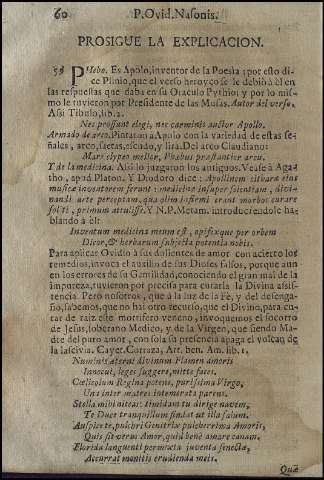 60 P. Ovid. Nasonis.
PROSIGUE LA EXPLICACION.
58 PHebo. Es Apolo, inventor de la Poesia; por esto di-
ce Plinio, que el verso heroyco se le debiò à èl en
las respuestas que daba en su Oraculo Pythio; y por lo mis-
mo le tuvieron por Presidente de las Musas. Autor del verso.
Assi Tibulo, lib. 2.
Nec prossunt elegi, nec carminis auctor Apollo.
Armado de arco. Pintaron à Apolo con la variedad de estas se-
ñales, arco, saetas, escudo, y lira. Del arco Claudiano:
Mars clypeo melior, Phœbus præstantior arcu.
Y de la medicina. Assi lo juzgaron los antiguos. Vease à Aga-
tho, apud Platon. Y Diodoro dice: Apollinem citharæ eius
musicæ inventorem ferunt: medicinæ insuper scientiam, divi-
nandi arte perceptam, qua olim infirmi erant morbos curare
soliti, primum attulisse. Y N. P. Metam. introduciendole ha-
blando à èl:
Inventum medicina meum est, opifexque per orbem
Dicor, & herbarum subjecta potentia nobis.
Para aplicar Ovidio à sus dolientes de amor con acierto los
remedios, invoca el auxilio de sus Dioses falsos, porque aun
en los errores de su Gentilidad, conociendo el gran mal de la
impureza, tuvieron por precisa para curarla la Divina assis-
tencia. Pero nosotros, que à la luz de la Fè, y del desenga-
ño, sabemos, que no hai otro recurso, que el Divino, para cu-
rar de raiz este mortifero veneno, invoquemos el socorro
de Jesus, soberano Medico, y de la Virgen, que siendo Ma-
dre del puro amor, con sola su presencia apaga el volcan de
la lascivia. Cayet. Carraza, Art. ben. Am. lib. 1.
Numinis æterni divinum Flamen amoris
Innocuè, leges suggere, mitte faces.
Cœlicolum Regina potens, purissima Virgo,
Una inter matres intemerata parens.
Stella mihi niteas: timidam tu dirige navem,
Te Duce tranquillum findat ut illa salum.
Auspice te, pulchri Genitrix pulcherrima Amoris,
Quis sit verus Amor, quid bene amare canam.
Florida languenti permixta juventa senecta,
Accurrat monitis erudienda meis.
Què